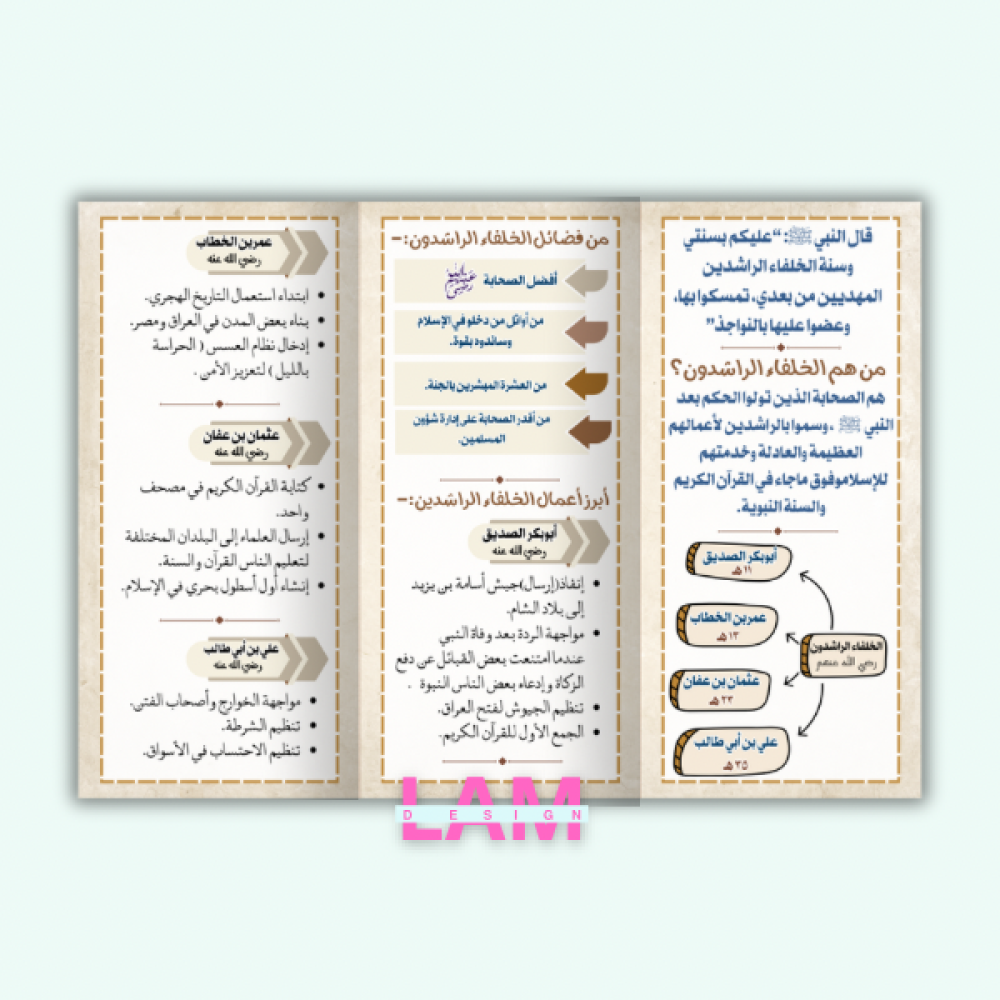 قال النبي ﷺ: "عليكم بسنتي
وسنة الخلفاء الراشدين
المهديين من بعدي، تمسكوا بها،
وعضوا عليها بالنواجذ"
من هم الخلفاء الراشدون؟
هم الصحابة الذين تولوا الحكم بعد
النبي ﷺ ، وسموا بالراشدين لأعمالهم
العظيمة والعادلة وخدمتهم
للإسلاموفوق ماجاء في القرآن الكريم
والسنة النبوية.
الخلفاء الراشدون
رضي الله عنهم
أبوبكر الصديق
١١ هـ
عمر بن الخطاب
١٣ هـ
عثمان بن عفان
٢٣ هـ
علي بن أبي طالب
٣٥ هـ
من فضائل الخلفاء الراشدون:-
أفضل الصحابة
من أوائل من دخلو في الإسلام
وساندوه بقوة.
من العشرة المبشرين بالجنة.
من أقدر الصحابة على إدارة شؤون
المسلمين.
أبرز أعمال الخلفاء الراشدين:-
أبوبكر الصديق
رضي الله عنه
• إنفاذ(إرسال)جيش أسامة بن يزيد
إلى بلاد الشام.
• مواجهة الردة بعد وفاة النبي
عندما امتنعت بعض القبائل عن دفع
الزكاة وإدعاء بعض الناس النبوة .
• تنظيم الجيوش لفتح العراق.
• الجمع الأول للقرآن الكريم.
عمر بن الخطاب
رضي الله عنه
• ابتداء استعمال التاريخ الهجري.
• بناء بعض المدن في العراق ومصر.
• إدخال نظام العسس ( الحراسة
بالليل ) لتعزيز الأمن .
عثمان بن عفان
رضي الله عنه
• كتابة القرآن الكريم في مصحف
واحد.
• إرسال العلماء إلى البلدان المختلفة
لتعليم الناس القرآن والسنة.
• إنشاء أول أسطول بحري في الإسلام.
علي بن أبي طالب
رضي الله عنه
• مواجهة الخوارج وأصحاب الفتن.
• تنظيم الشرطة.
• تنظيم الاحتساب في الأسواق.
LAM
DESIGN